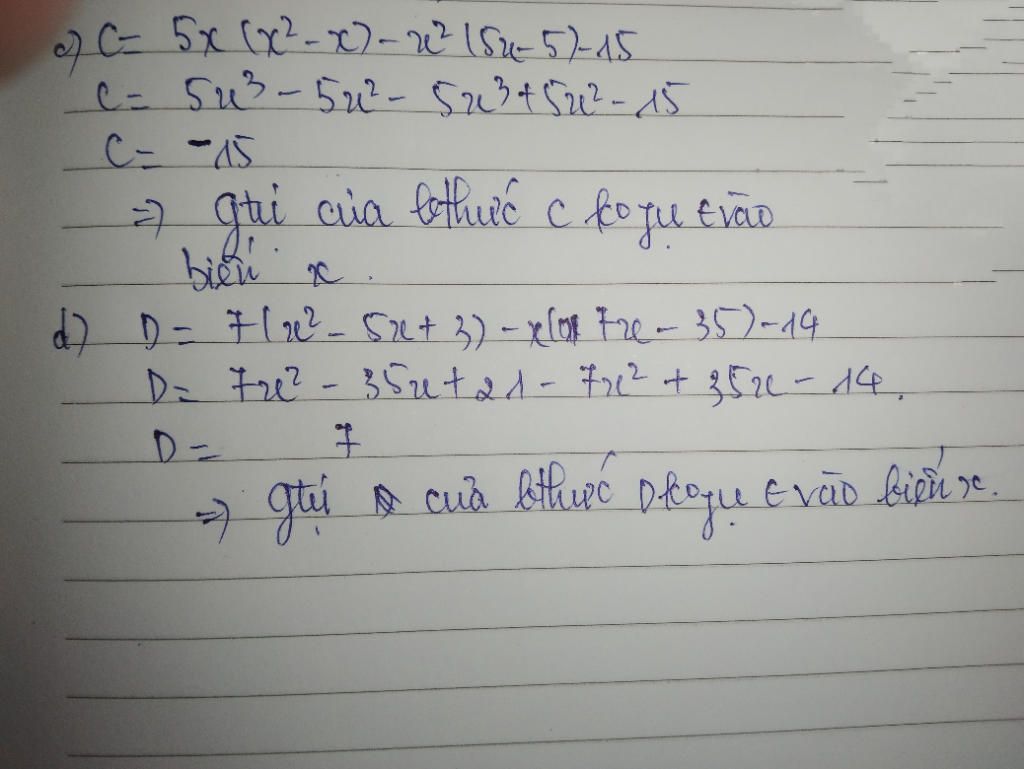 c) C = 5x (x² - x) - x² (5x - 5) - 15
C = 5x³ - 5x² - 5x³ + 5x² - 15
C = -15
=> gtrị của bthức C ko fụ t vào
biến x.
d) D = 7(x² - 5x + 3) - x( 7x - 35) - 14
D = 7x² - 35x + 21 - 7x² + 35x - 14.
D = 7
=> gtrị của bthức D ko fụ t vào biến x.